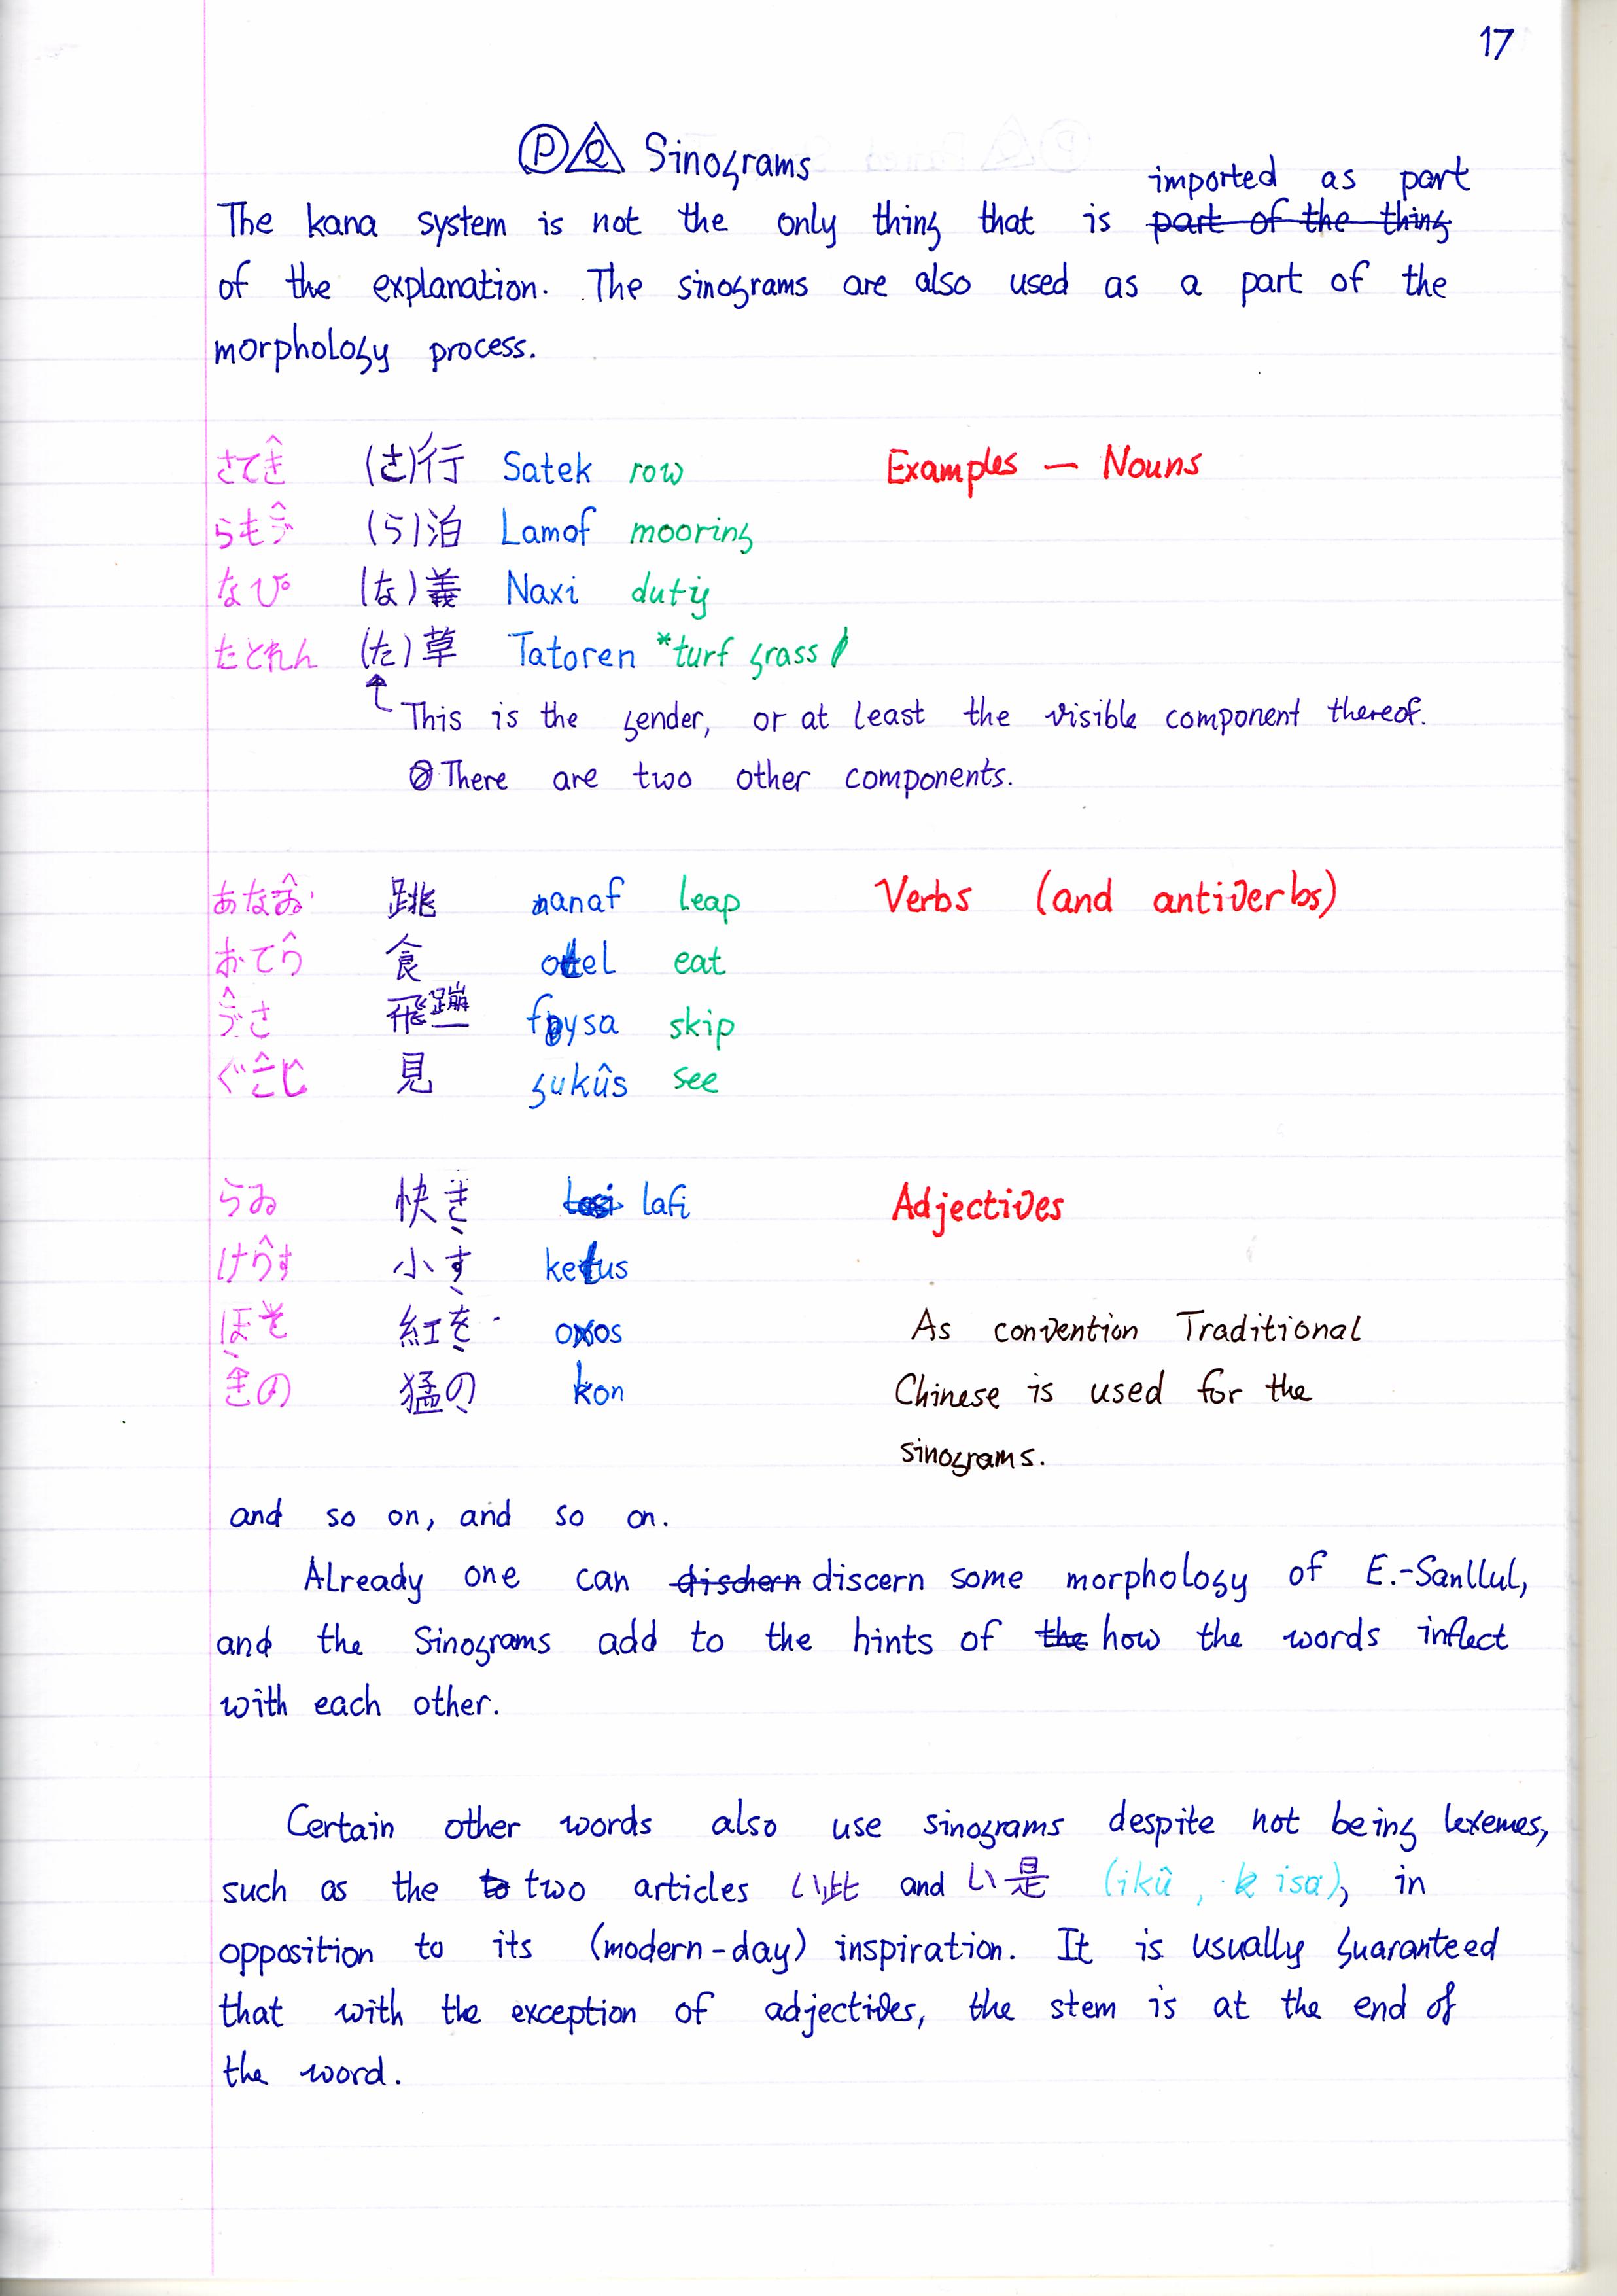 17
Ⓟ Q Sinograms
imported as part
The kana system is not the only thing that is ~~part of the thing~~
of the explanation. The sinograms are also used as a part of the
morphology process.
さてき̂ (さ)行 Satek row Examples — Nouns
らもゔ̂ (ら)泊 Lamof mooring
なぴ (な)義 Naxi duty
たとれん (た)草 Tatoren *turf grass
↑ This is the gender, or at least the visible component thereof.
There are two other components.
あな 跳 anaf leap Verbs (and antiverbs)
おてら̂ 食 otel eat
ゔ̂さ 飛蹦 fysa skip
ぐこ̂じ 見 gukûs see
らゐ 快き lafi Adjectives
けら̂す 小す ketus
ほそ 紅を oxos As convention Traditional
きの 猛の kon Chinese is used for the
sinograms.
and so on, and so on.
Already one can ~~dischern~~ discern some morphology of E.-Sanllul,
and the Sinograms add to the hints of ~~the~~ how the words inflect
with each other.
Certain other words also use sinograms despite not being lexemes,
such as the ~~to~~ two articles い此 and い是 (ikû, isa), in
opposition to its (modern-day) inspiration. It is usually guaranteed
that with the exception of adjectives, the stem is at the end of
the word.